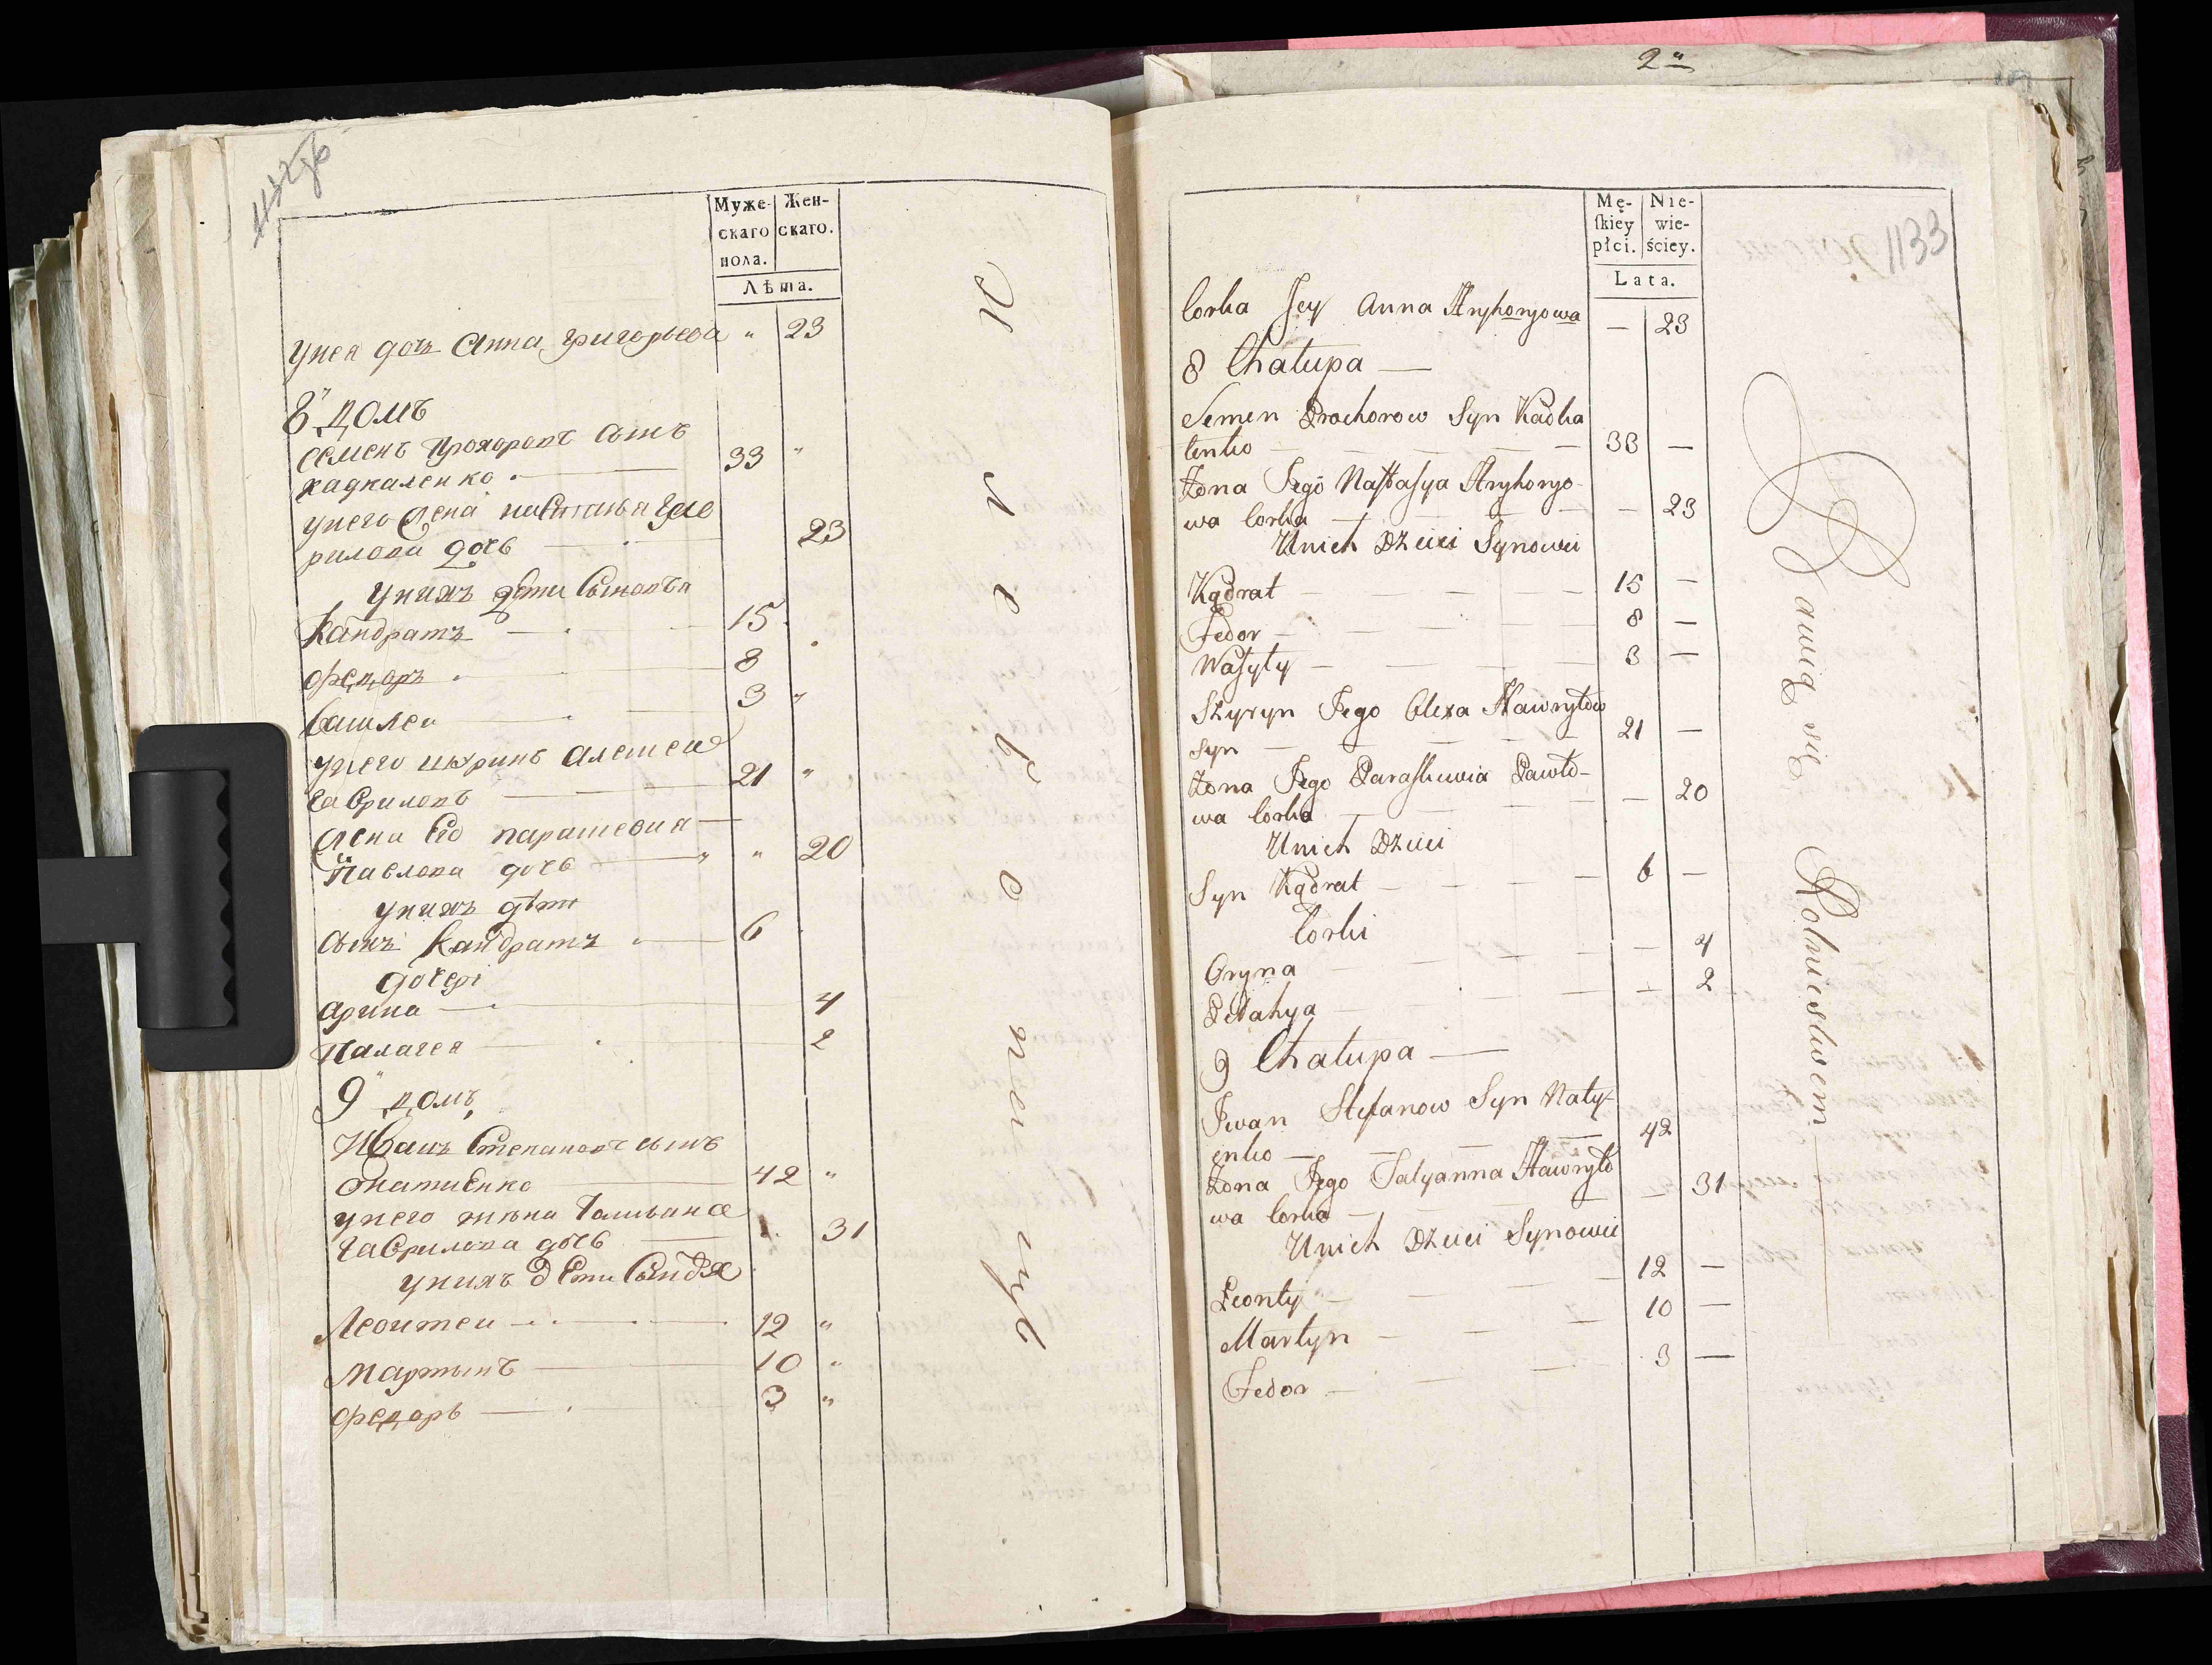 Муже-
скаго
пола.
Жен-
скаго.
Лѣта.
унея дочь Анна Григорьева " 23
8" домъ
Семенъ Прохоровъ сынъ
Хадкаленко 33 "
унего жена Настасья Гав
рилова дочь 23
унихъ дети Сыновья
Кандратъ 15
Федоръ 8
Василеи 3 "
унего шуринъ Алексеи
Гавриловъ 21 "
жена Его Парасковия
Павлова дочь " 20
унихъ дѣти
сынъ Кандратъ 6
дочери
Арина 4
Палагея 2
9" домъ
Иванъ Степановъ сынъ
42 "
унего жена Татьяна
Гаврилова дочь 31
унихъ дети
Леонтеи 12 "
Мартынъ 10 "
Федоръ 3 "
2"
1133
Mę-
ſkiey
płci.
Nie-
wie-
ściey.
Lata.
Corka Jey Anna Hryhoryowa — 23
8 Chałupa —
Semen Prochorow Syn Kadka
lenko — 33 —
Żona Jego Naſtaſya Hryhoryo-
wa Corka — — 23
Unich Dzieci Synowie
Kądrat — 15 —
Fedor — 8 —
Waſyly — 3 —
Szyryn Jego Olexa Hawryłow
Syn — 21 —
Żona Jego Paraſkiewia Pawło-
wa Corka — — 20
Unich Dzieci
Syn Kądrat — 6 —
Corki
Oryna — — 4
Pelahya — — 2
9 Chałupa —
Jwan Stefanow Syn Naty-
enko — 42
Żona Jego Tatyanna Hawryło
wa Corka — — 31
Unich Dzieci Synowie
Leonty — 12 —
Martyn — 10 —
Fedor — 3 —
Bawią się Rolnictwem